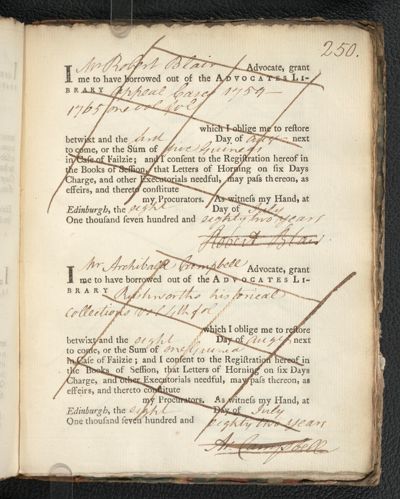 250.
I Mr Robert Blair Advocate, grant
me to have borrowed out of the ADVOCATES LI-
BRARY Appeal Cases 1754-
1765 one vol fol
which I oblige me to reſtore
betwixt and the Day of next
to come, or the Sum of Guineas
in Caſe of Failzie; and I conſent to the Regiſtration hereof in
the Books of Seſſion, that Letters of Horning on ſix Days
Charge, and other Executorials needful, may paſs thereon, as
effeirs, and thereto conſtitute
my Procurators. As witneſs my Hand, at
Edinburgh, the eight Day of July
One thouſand ſeven hundred and eighty two years
Robert Blair
I Mr Archibald Campbell Advocate, grant
me to have borrowed out of the ADVOCATES LI-
BRARY Rushworths historical
collections vol 4th fol
which I oblige me to reſtore
betwixt and the eight Day of Augt next
to come, or the Sum of one Guinea
in Caſe of Failzie; and I conſent to the Regiſtration hereof in
the Books of Seſſion, that Letters of Horning on ſix Days
Charge, and other Executorials needful, may paſs thereon, as
effeirs, and thereto conſtitute
my Procurators. As witneſs my Hand, at
Edinburgh, the eight Day of July
One thouſand ſeven hundred and eighty two years
Ar. Campbell